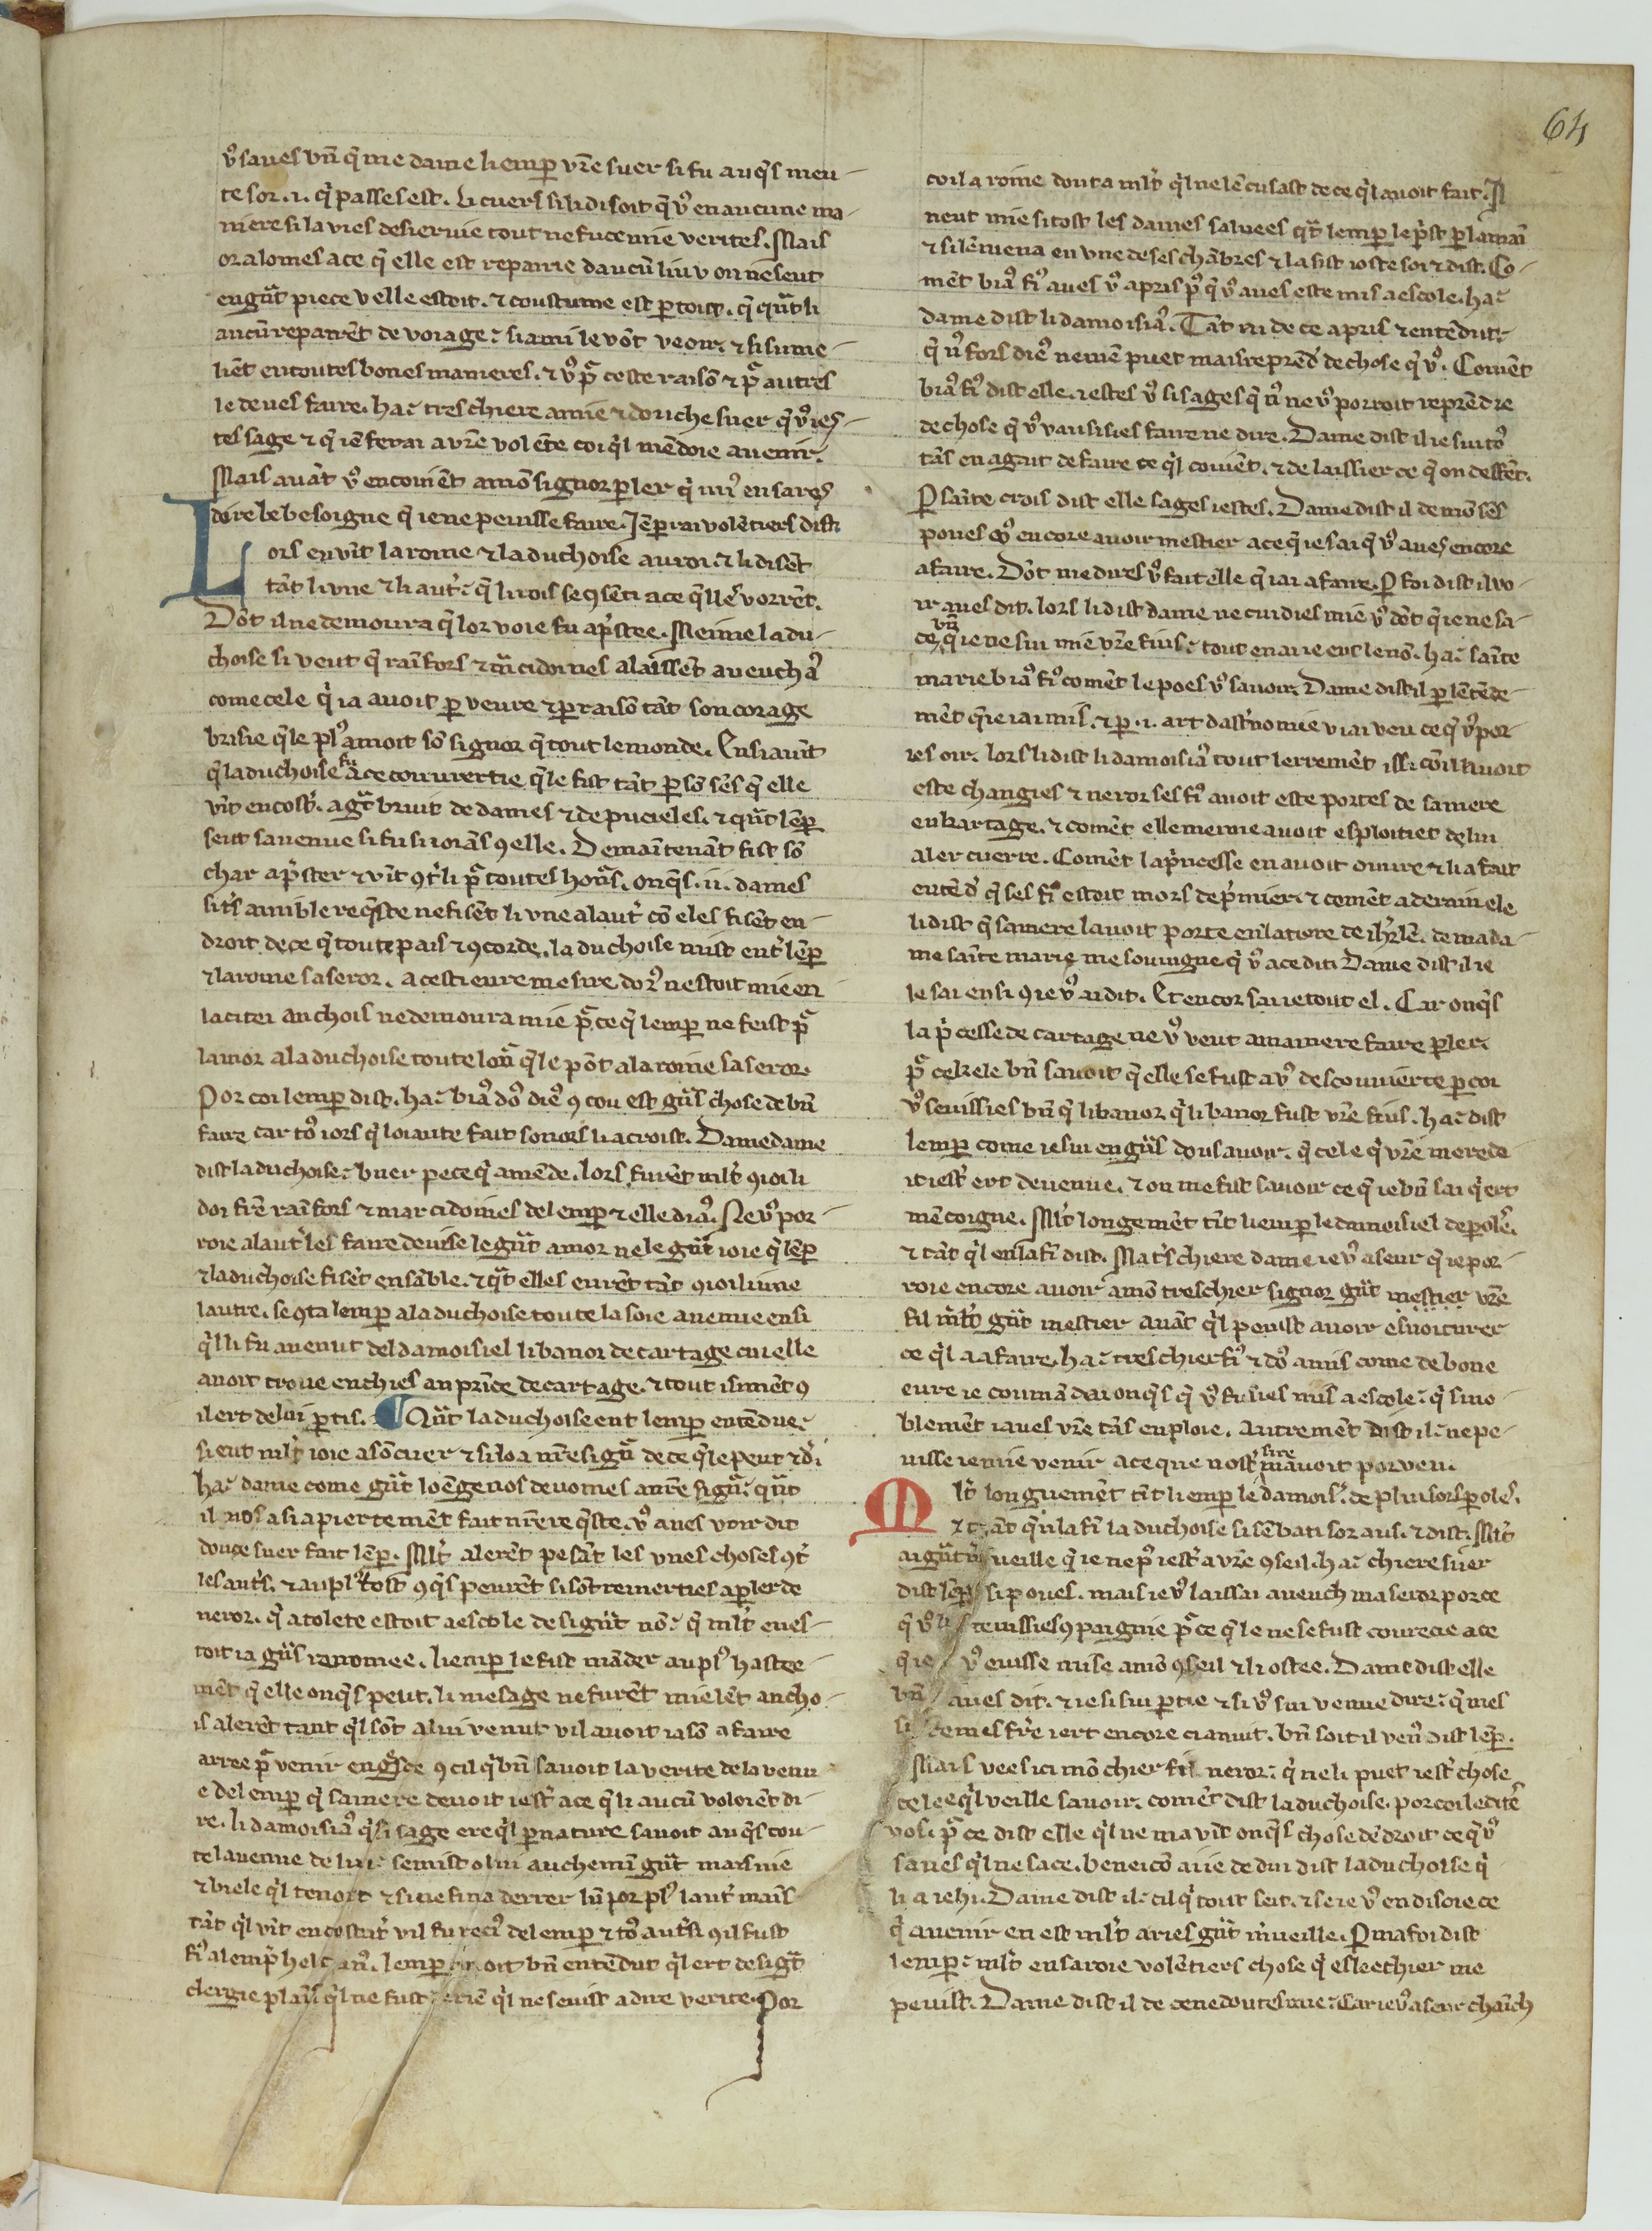 64
vͦ saues bn̄ q̄ me dame lemꝑ vr̄e suer si fu auq̄s meu-
te sor .i. q̄ passes est. li cuers si li disoit q̄ vͦ en aucune ma-
niere si la vies deseruie tout ne fuce mie verites. Mais
or alomes a ce q̄ elle est repairie daucū liu v on nē seut
en gñt piece v elle estoit. ⁊ coustume est ꝑ tout. q̄ qñt li
aucū repairēt de voiage: si ami le vōt veoir. ⁊ si sume-
liēt en toutes bones manieres. ⁊ vͦ pͣ ceste raisō ⁊ pͣ autres
le deues faire. ha: tres chiere amie ⁊ douche suer q̄ vͦ ies-
tes sage ⁊ q̄ iē ferai a vr̄e volēte coi q̄l mē doie auenir.
Mais auāt vͦ en couiēt a mō signor ꝑler q̄ mi᷒ en sares
dire le besoigne q̄ ie ne peuisse faire. Iē ꝑrai volētiers dist
Lors en vīt la roine ⁊ la duchoise au roi. ⁊ li disēt
tāt li vne ⁊ li aut͛: q̄ li rois se ꝯsēti a ce q̄lles vorrēt.
Dōt il ne demoura q̄ lor voie fu ap̄stee. Meime la du-
choise si veut q̄ raīfors ⁊ m̄cidoines alaissēt aueuch a᷒
come cele q̄ ia auoit ꝑ veure ⁊ ꝑ raisō tāt son corage
brisie q̄le pl᷒ amoit sō signor q̄ tout le monde. Ensi auīt
q̄ la duchoise fu a ce conuertie q̄le fist tāt ꝑ sō sēs q̄ elle
vīt en cost͛. a gͣt bruit de dames ⁊ de pucieles. ⁊ qñt lēꝑ
seut sa venue si fu si ioiās ꝯ elle. Demaītenāt fist sō
char ap̄ster ⁊ vīt ꝯt͛ li pͣ toutes honͣs. onq̄s .ii. dames
si t͛s amible req̄ste ne fisēt li vne a laut͛ cō eles fisēt en-
droit de ce q̄ toute pais ⁊ ꝯcorde. la duchoise mist ent͛ lēꝑ
⁊ la roine sa seror. a cesti eure mesire do᷒ nestoit mie en
la citei anchois ne demoura mie pͣ ce q̄ lemꝑ ne feist pͣ
lamor a la duchoise toute lonͣ q̄le pōt a la roine sa seror.
Por coi lemꝑ dist. ha: bia᷒ do᷒ die᷒ ꝯ cou est gñs chose de bn̄
faire car to᷒ iors q̄ loiaute fait sonors li acroist. Dame dame
dist la duchoise: buer pece q̄ amēde. lors furēt mlt̄ ꝯioi li
doi fr̄e raīfors ⁊ marcidoines de lemꝑ ⁊ elle dia᷒. Ne vͦ por-
roie a laut͛ les faire deuise le gñt amor ne le gñt ioie q̄ lēꝑ
⁊ la duchoise fisēt ensāble. ⁊ qñt elles eurēt tāt ꝯioi li vne
lautre. se ꝯta lemꝑ a la duchoise toute la soie auenue ensi
q̄l li fu auenut del damoisiel libanor de cartage cui elle
auoit troue en chies an prīce de cartage. ⁊ tout isimēt ꝯ
il ert de lui ꝑtis. ¶ Qñt la duchoise eut lemꝑ entēdue:
si eut mlt̄ ioie a sō cuer ⁊ si loa nr̄e signͣ de ce q̄le peut ⁊ di͛
ha: dame come gñt loēge nos deuomes a nr̄e signͣ: qñt
il nos a si apiertemēt fait nr̄e req̄ste. vͦ aues voir dit
douce suer fait lēꝑ. Mlt̄ alerēt pesāt les vnes choses ꝯt͛
les aut͛s. ⁊ au pl᷒ tost ꝯq̄s peurēt si sōt reuerties a ꝑler de
neror. q̄ a tolete estoit a escole de si gñt nō: q̄ mlt̄ en es-
toit ia gñs renomee. lemꝑ le fist māder au pl᷒ hastee-
mēt q̄ elle onq̄s peut. li mesage ne furēt mie lēt ancho-
is alerēt tant q̄l sōt a lui venut v il auoit ia sō afaire
arree pͣ venir en gͣsce ꝯ cil q̄ bn̄ sauoit la verite de la venu-
e de lemꝑ q̄ sa mere deuoit iest͛ a ce q̄ li aucū voloiēt di-
re. li damoisia᷒ q̄ si sage ere q̄l ꝑ nature sauoit auq̄s tou-
te lauenue de lui: se mist o lui au chemī gñt maisnie
⁊ biele q̄l tenoit ⁊ si ne fina derrer lū jor pl᷒ laut͛ maīs
tāt q̄l vīt en costāt͛ v il fu reciu᷒ de lemꝑ ⁊ to᷒ aut͛si ꝯ il fust
fi᷒ a lemꝑ helcan᷒. lemꝑ auoit bn̄ entēdut q̄l ert de si gñt
clergie q̄l ne fust riē q̄l ne seuist a dire verite. Por
coi la roine douta mlt̄ q̄l ne lēcusast de ce q̄l auoit fait. Il
neut mie si tost les dames saluees qñt lemꝑ le p̄st ꝑ la main
⁊ si lēmena en vne de ses chābres ⁊ la sist ioste soi ⁊ dist. Co-
mēt bia᷒ fi᷒ aues vͦ apris p᷒ q̄ vͦ aues este mis a escole. ha:
dame dist li damoisia᷒. Tāt ai de ce apris ⁊ entēdut:
q̄ n᷒ fors die᷒ ne mē puet mais reprēd͛ de chose q̄ vͦ. Comēt
bia᷒ fi᷒ dist elle. iestes vͦ si sages q̄ n᷒ ne vͦ porroit reprēdre
de chose q̄ vͦ vausisies faire ne dire. Dame dist il ie sui to᷒
tās en agait de faire ce q̄l couiēt. ⁊ de laissier ce q̄ on deffēt.
Ꝑ saīte crois dist elle sages iestes. Dame dist il de mō sēs
poues encore auoir mestier a ce q̄ ie sai q̄ vͦ aues encore
a faire. Dōt me dires vͦ fait elle q̄ iai a faire. Ꝑ foi dist il vo-
ir aues dit. lors li dist dame ne cuidies mie vͦ dōt q̄ ie ne sa-
ce bn̄ q̄ ie ne sui mie vr̄e fius: tout en aie eus le nō. ha: saīte
marie bia᷒ fi᷒ comēt le poes vͦ sauoir. Dame dist il ꝑ lētēde-
mēt q̄ ie iai mis. ⁊ ꝑ .i. art dast͛nomie v iai veu ce q̄ vͦ por-
res oir. lors li dist li damoisia᷒ tout lerremēt issi cō il auoit
este changies ⁊ neror ses fi᷒ auoit este portes de sa mere
en kartage. ⁊ comēt elle meime auoit esploitiet de lui
aler cuerre. Comēt la p̄ncesse en auoit ouure ⁊ li a fait
entēd͛ q̄ ses fi᷒ estoit mors de p̄mier. ⁊ comēt a derainele
li dist q̄ sa mere lauoit porte en la tiere de ih̄rlem. de ma da-
me saīte marie me souuigne q̄ vͦ a ce dit. Dame dist il ie
le sai ensi ꝯ ie vͦ ai dit. Et encor sai ie tout el. Car onq̄s
la p̄cesse de cartage ne vͦ veut a ma mere faire ꝑler.
pͣ ce kele bn̄ sauoit q̄ elle se fust a vͦ descouuierte ꝑ coi
vͦ seuissies bn̄ q̄ libanor q̄ libanor fust vr̄e fius. ha: dist
lemꝑ come ie sui en gñs dous auoir. q̄ cele q̄ vr̄e mere de-
uoit iest͛ ert deuenue. ⁊ on me fist sauoir ce q̄ ie bn̄ sai q̄ ert
mēcoigne. Mlt̄ longemēt tīt lemꝑ le damoisiel de pole͛.
⁊ tāt q̄l en la fī dist. Ma t͛s chiere dame ie vͦ aseur q̄ ie por-
roie encore auoir a mō tres chier signor gñt mestier vr̄e
fil mlt̄ gñt mestier auāt q̄l peuist auoir esuoiturer
ce q̄l a a faire. ha: tres chier fi᷒ ⁊ do᷒ amis come de bone
eure ie coumādai onq̄s q̄ vͦ fusies mis a escole: q̄ si no-
blemēt iaues vr̄e tās emploie. Autremēt dist il: ne pe-
uisse ie mie venir a ce que nost͛ sire mauoit porveu.
Mlt̄ longuemēt tīt lemꝑ le damois͛. de pluisors ꝑoles.
⁊ tāt q̄n la fī la duchoise si sēbati sor aus. ⁊ dist. Mlt̄
ai gñt m͛ueille q̄ ie ne p᷒ iest͛ a vr̄e ꝯseil. ha: chiere suer
dist lēꝑ si poues. mais ie vͦ laissai aueuch ma seror por ce
q̄ vͦ li tenissies ꝯpaignie pͣ ce q̄le ne se fust courecie a ce
q̄ ie vͦ euisse mise a mō ꝯseil ⁊ li ostee. Dame dist elle
bn̄ aues dit. ⁊ ie si sui ꝑtie ⁊ si vͦ sui venue dire: q̄ mes
sires mes fr̄e iert encore ci anuit. bn̄ soit il ven᷒ dist lēꝑ.
Mais vees ici mō chier fil neror: q̄ ne li puet iest͛ chose
celee q̄l veille sauoir. comēt dist la duchoise. por coi le dites
vos. pͣ ce dist elle q̄l ne ma vīt onq̄s chose dēdroit ce q̄ vͦ
saues q̄l ne sace. beneicō aiie de diu dist la duchoise q̄
li a iehi. Dame dist il: cil q̄ tout seit. ⁊ se ie vͦ en disoie ce
q̄ auenir en est mlt̄ aries gñt m͛ueille. Ꝑ ma foi dist
lemꝑ: mlt̄ en saroie volētiers chose q̄ esleechier me
peuist. Dame dist il de ce ne doutes mie: car ie vͦ aseur chaīch